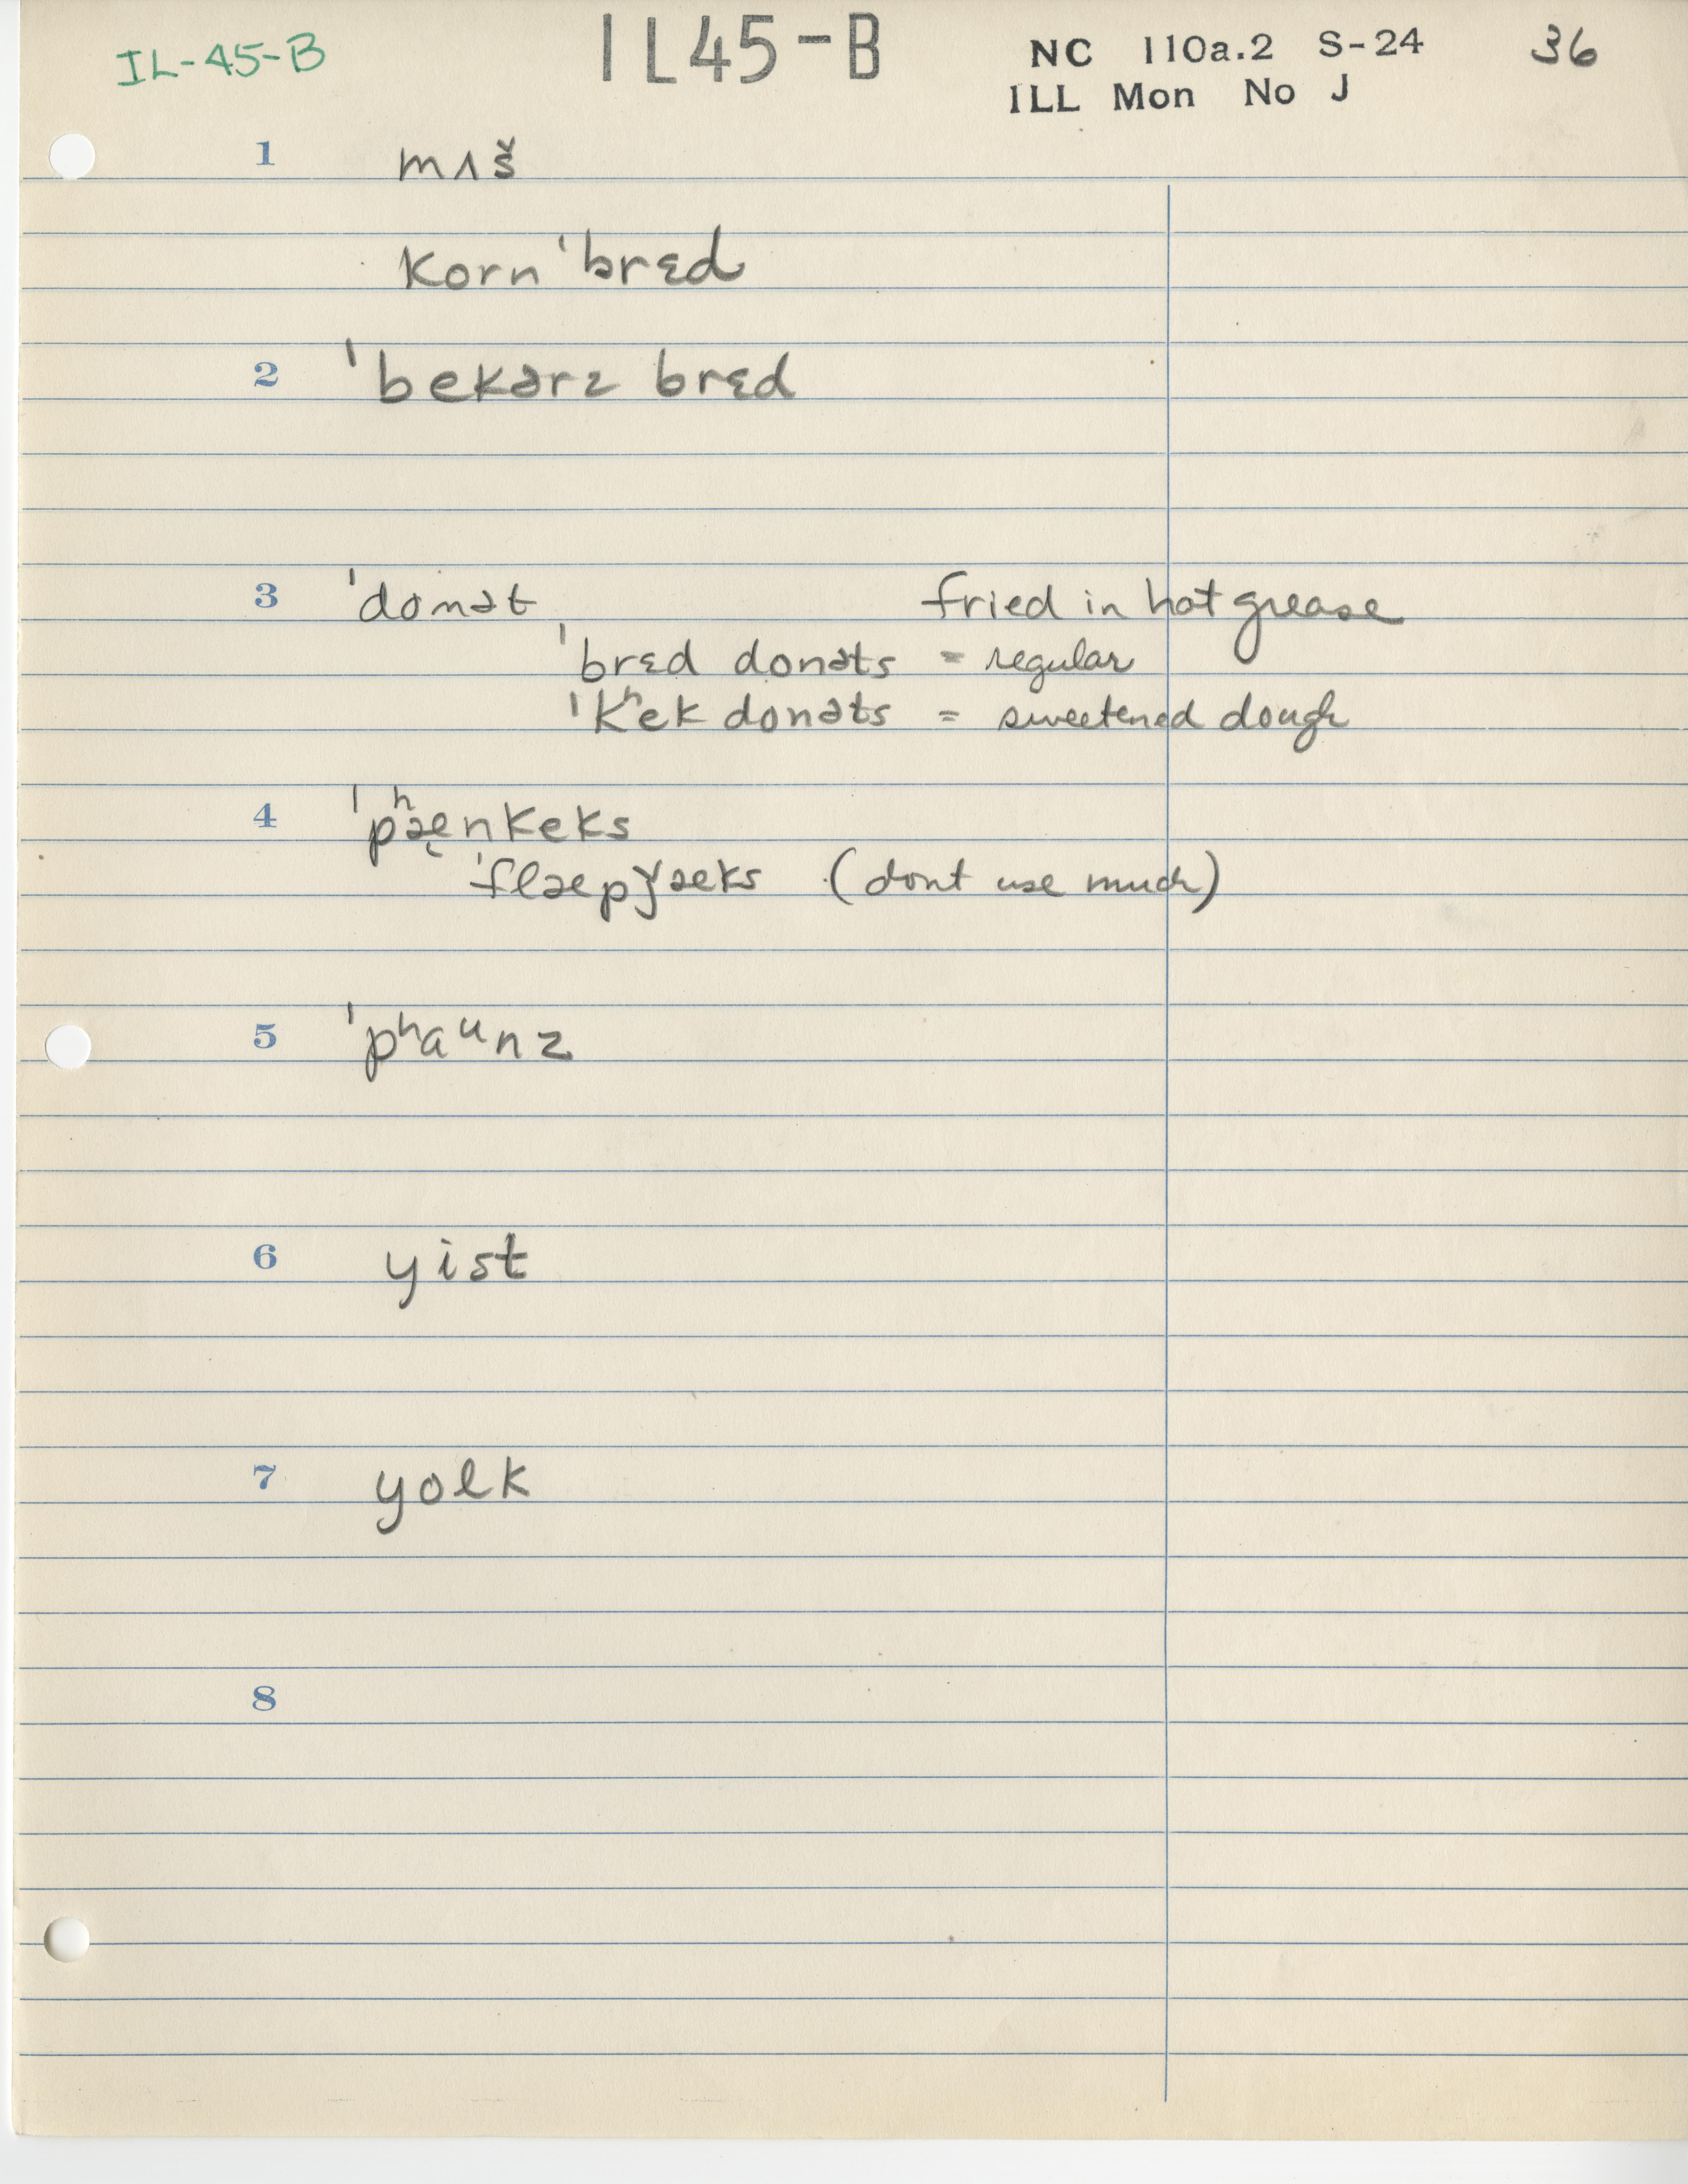 IL-45-B IL45-B NC 110a.2 S-24 36
ILL Mon No J
1 mʌš
korn ˈbrɛd
2 ˈbekərz brɛd
3 ˈdonət fried in hot grease
ˈbrɛd donəts = regular
ˈkʰek donəts = sweetened dough
4 ˈpʰæ̨nkeks
ˈflæpǰæks (dont use much)
5 ˈpʰaᵘnz
6 yist
7 yolk
8